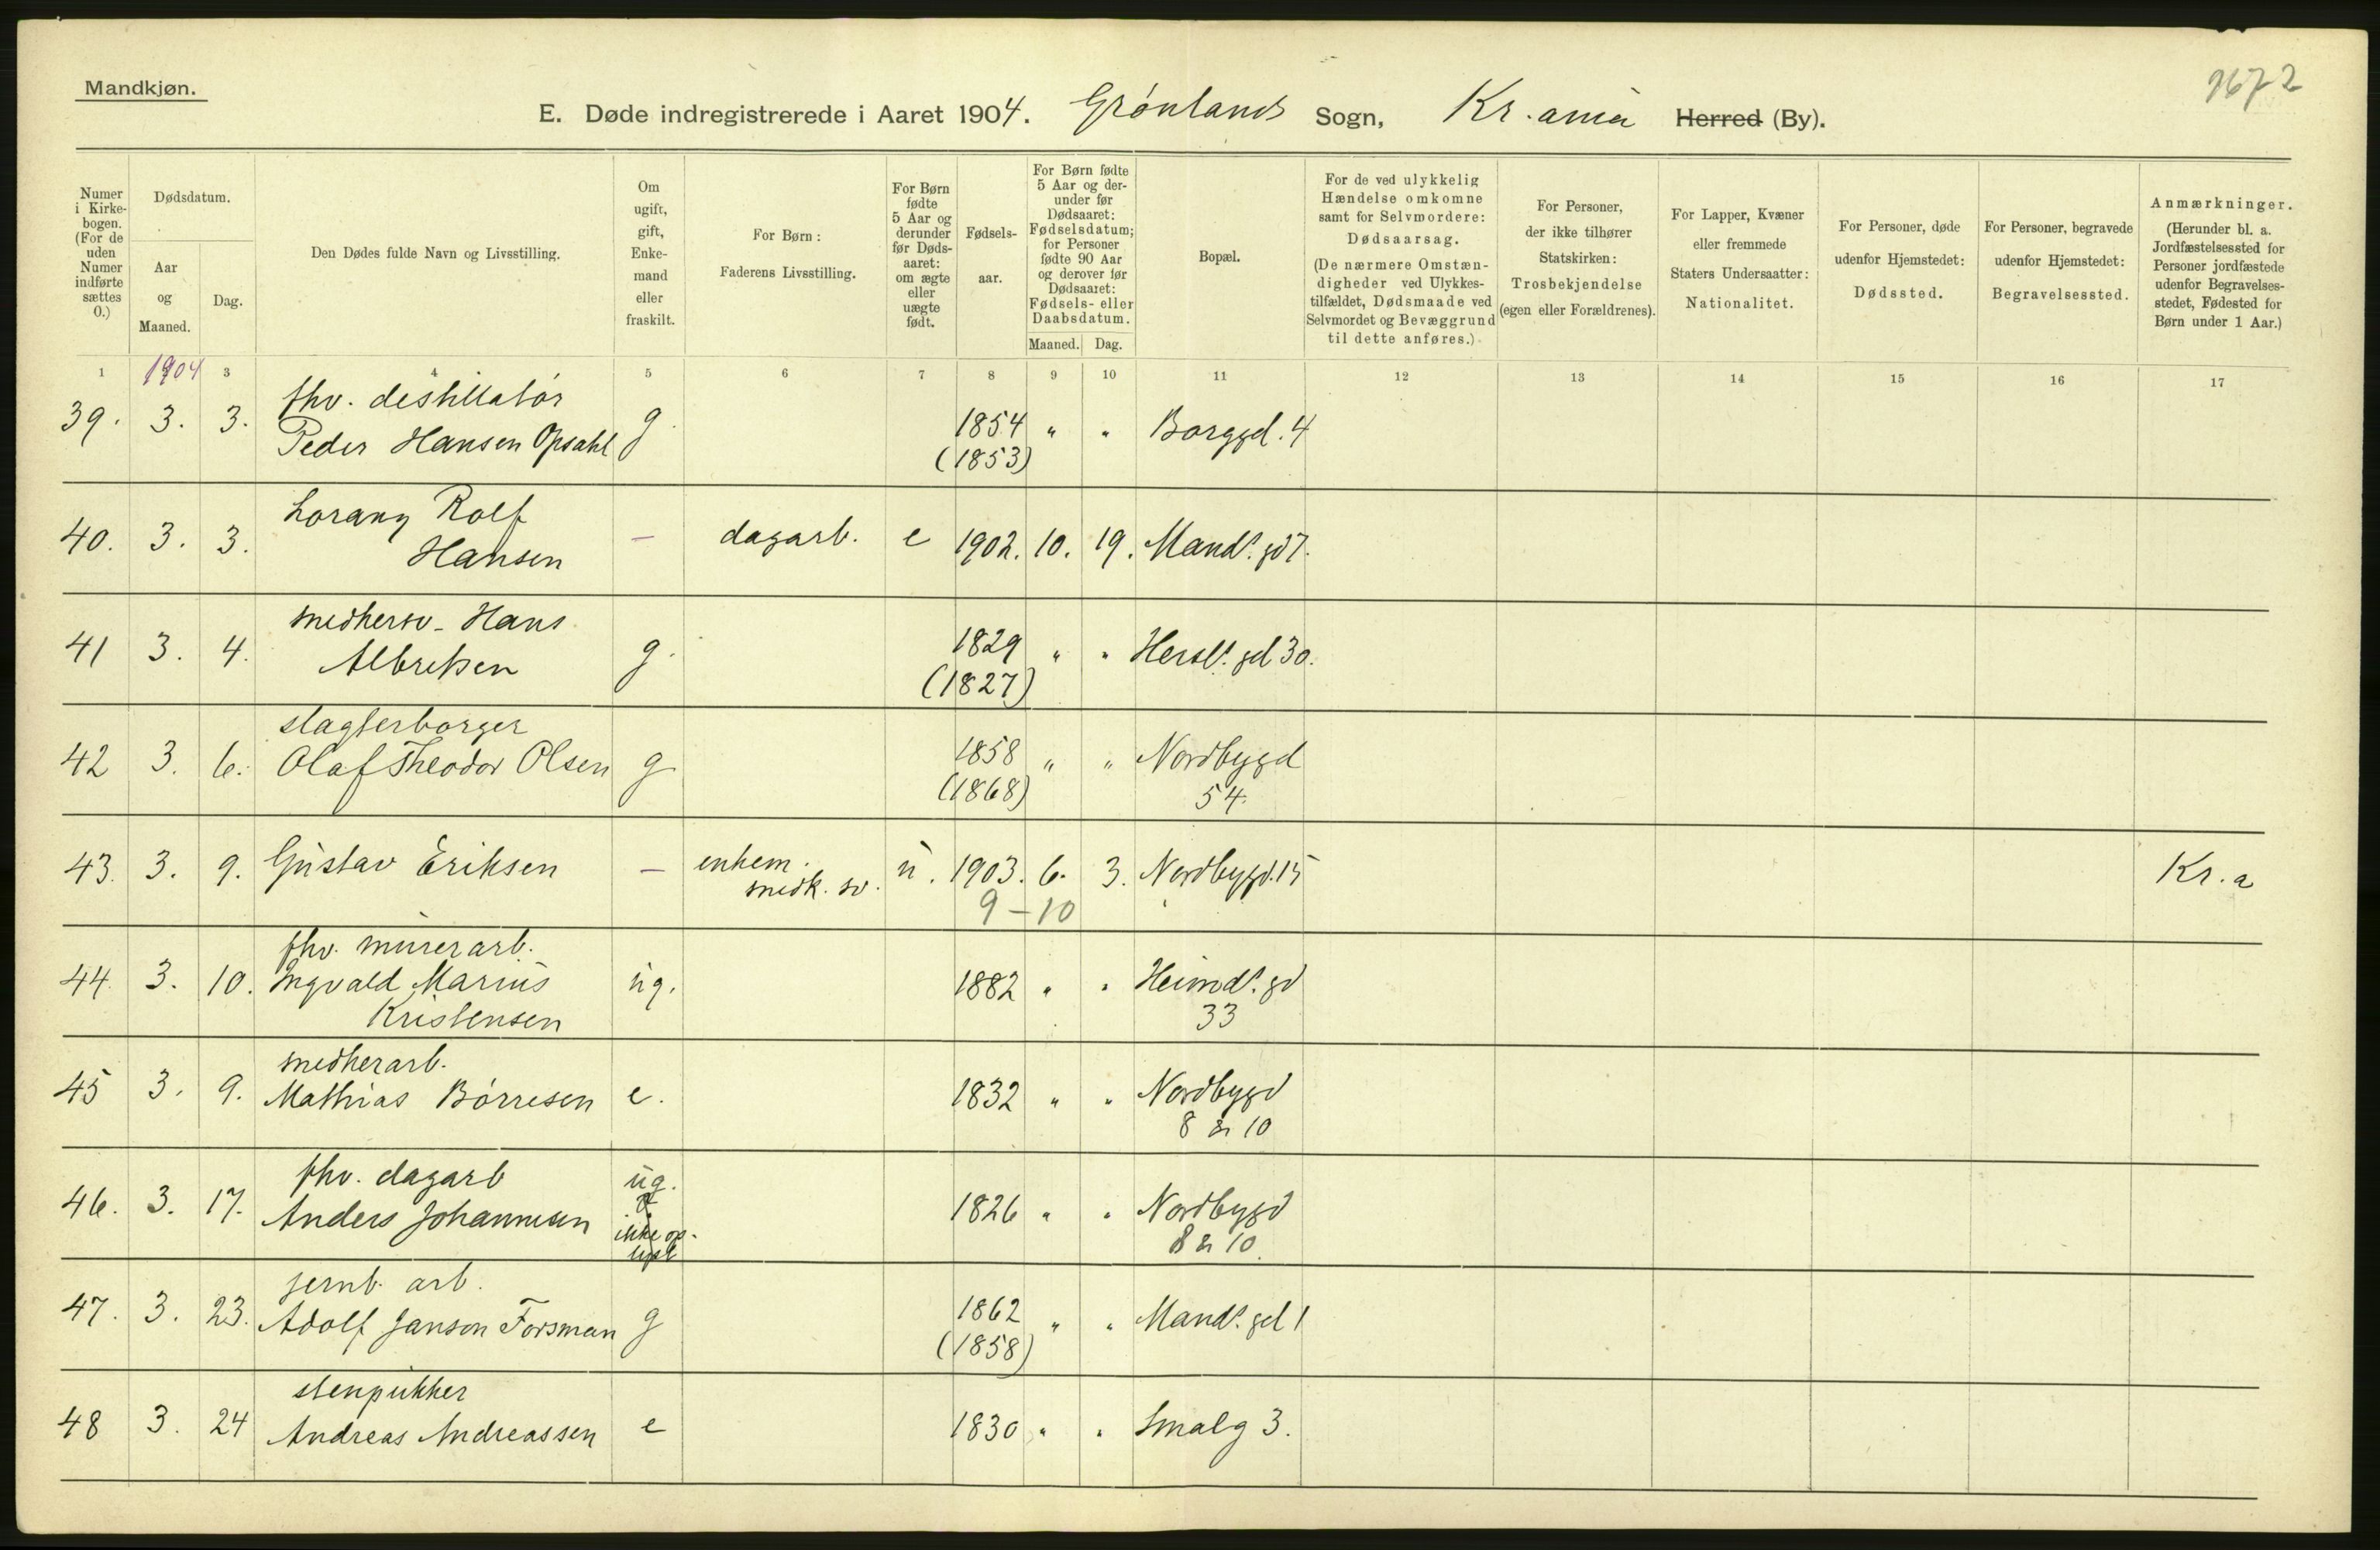 Mandkjøn.
9672
E. Døde indregistrerede i Aaret 1904. Grönlands Sogn, Kr.ania Herred (By).
Numer i Kirkebogen. (For de uden Numer indførte sættes 0.)
Dødsdatum.
Aar og Maaned.
Dag.
Den Dødes fulde Navn og Livsstilling.
Om ugift, gift, Enkemand eller fraskilt.
For Børn: Faderens Livsstilling.
For Børn fødte 5 Aar og derunder før Dødsaaret: om ægte eller uægte født.
Fødselsaar.
For Børn fødte 5 Aar og derunder før Dødsaaret: Fødselsdatum; for Personer fødte 90 Aar og derover før Dødsaaret: Fødsels- eller Daabsdatum.
Maaned. Dag.
Bopæl.
For de ved ulykkelig Hændelse omkomne samt for Selvmordere: Dødsaarsag. (De nærmere Omstændigheder ved Ulykkestilfældet, Dødsmaade ved Selvmordet og Bevæggrund til dette anføres.)
For Personer, der ikke tilhører Statskirken: Trosbekjendelse (egen eller Forældrenes).
For Lapper, Kvæner eller fremmede Staters Undersaatter: Nationalitet.
For Personer, døde udenfor Hjemstedet: Dødssted.
For Personer, begravede udenfor Hjemstedet: Begravelsessted.
Anmærkninger. (Herunder bl. a. Jordfæstelsessted for Personer jordfæstede udenfor Begravelsesstedet, Fødested for Børn under 1 Aar.)
1 1904 3 4 5 6 7 8 9 10 11 12 13 14 15 16 17
fhv. destillatör
39. 3. 3. Peder Hansen Opsahl g. 1854 " " Borggd. 4
(1853)
Lorang Rolf
40. 3. 3. Hansen — dagarb. e 1902. 10. 19. Mandls. gd 7.
snedkersv. Hans
41 3. 4. Albretsen g. 1829 " " Hersls. gd 30.
(1827)
slagterborger
42 3. 6. Olaf Theodor Olsen g 1858 " " Nordbygd
(1868) 54.
43. 3. 9. Gustav Eriksen — enkem. snedk. sv. u. 1903. 6. 3. Nordbygd. 15 Kr.a
9-10
fhv. murerarb.
44. 3. 10. Ingvald Marius ug. 1882 " " Heimds. gd
Kristensen 33
snedkerarb.
45 3. 9. Mathias Börresen e. 1832 " " Nordbygd
8 & 10
fhv. dagarb ug.
46. 3. 17. Anders Johannesen ikke oplyst 1826 " " Nordbygd
8 & 10.
jernb. arb.
47. 3. 23. Adolf Janson Forsman g 1862 " " Mands. gd 1
(1858)
stenpukker
48 3. 24 Andreas Andreassen e 1830 " " Smalg 3.